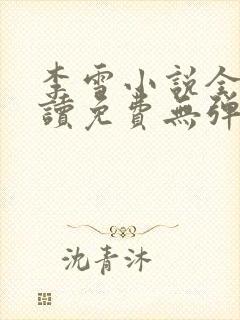 李雪小说全
讀免費無彈
沈青沐